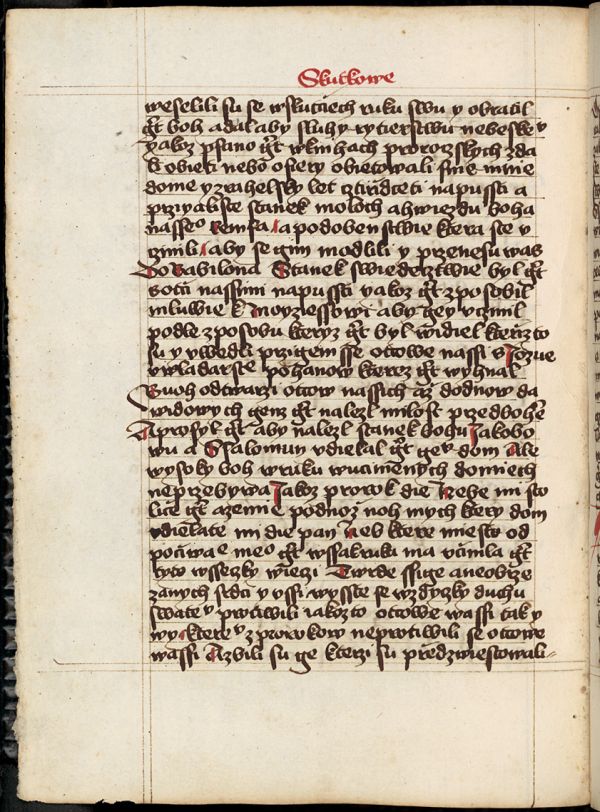 Skutkowe
weselili su se wskutciech ruku swu y obratil
gt boh adal aby sluhy rytierstwu nebeske° v
yakoz psano gt wknihach prorozskych zda
li obieti nebo ofiery obietowali sme mnie
dome yzrahelsky let cztiridceti napussti a
przigaliste stanek moloch ahwiezdu boha
nasse° Remfa a podobenstwie ktera ste v
czinili aby se gim modlili y przenesu was
do Babilona Stanek swiedecztwie byl gt
sotci nassimi napussti yakoz gt zposobil
mluwie k Moyziessowi aby gey vczinil
podle zposobu kteryz gt byl widiel kterizto
su y vwedli przigemsse otcowe nassi s Jozue
vwladarstie pohanow kterez gt wyhnal
Buoh odtwarzi otcow nassich az dodnow da
widowych genz gt nalezl milost przedbohem
A prosyl gt aby nalezl stanek bohu Jakobo
wu a Ssalomun vdielal gt ge° dom Ale
wysoky boh wruku wucinenych domiech
neprzebywa Jakoz prorok die Nebe mi sto
lice gt azemie podnoz noh mych ktery dom
vdielate mi die pan Neb ktere miesto od
pociwa e me° gt wssak ruka ma vcinila gt
tyto wsseczky wieczi Twrde ssige aneobrze
zanych srdci y vssi wysste se wzdyczky duchu
swate° protiwili iakozto otcowe wassi tak y
wy ktere° zprorokow neprotiwili se otcowe
wassi Azbili su ge kterzi su przedzwiestowali